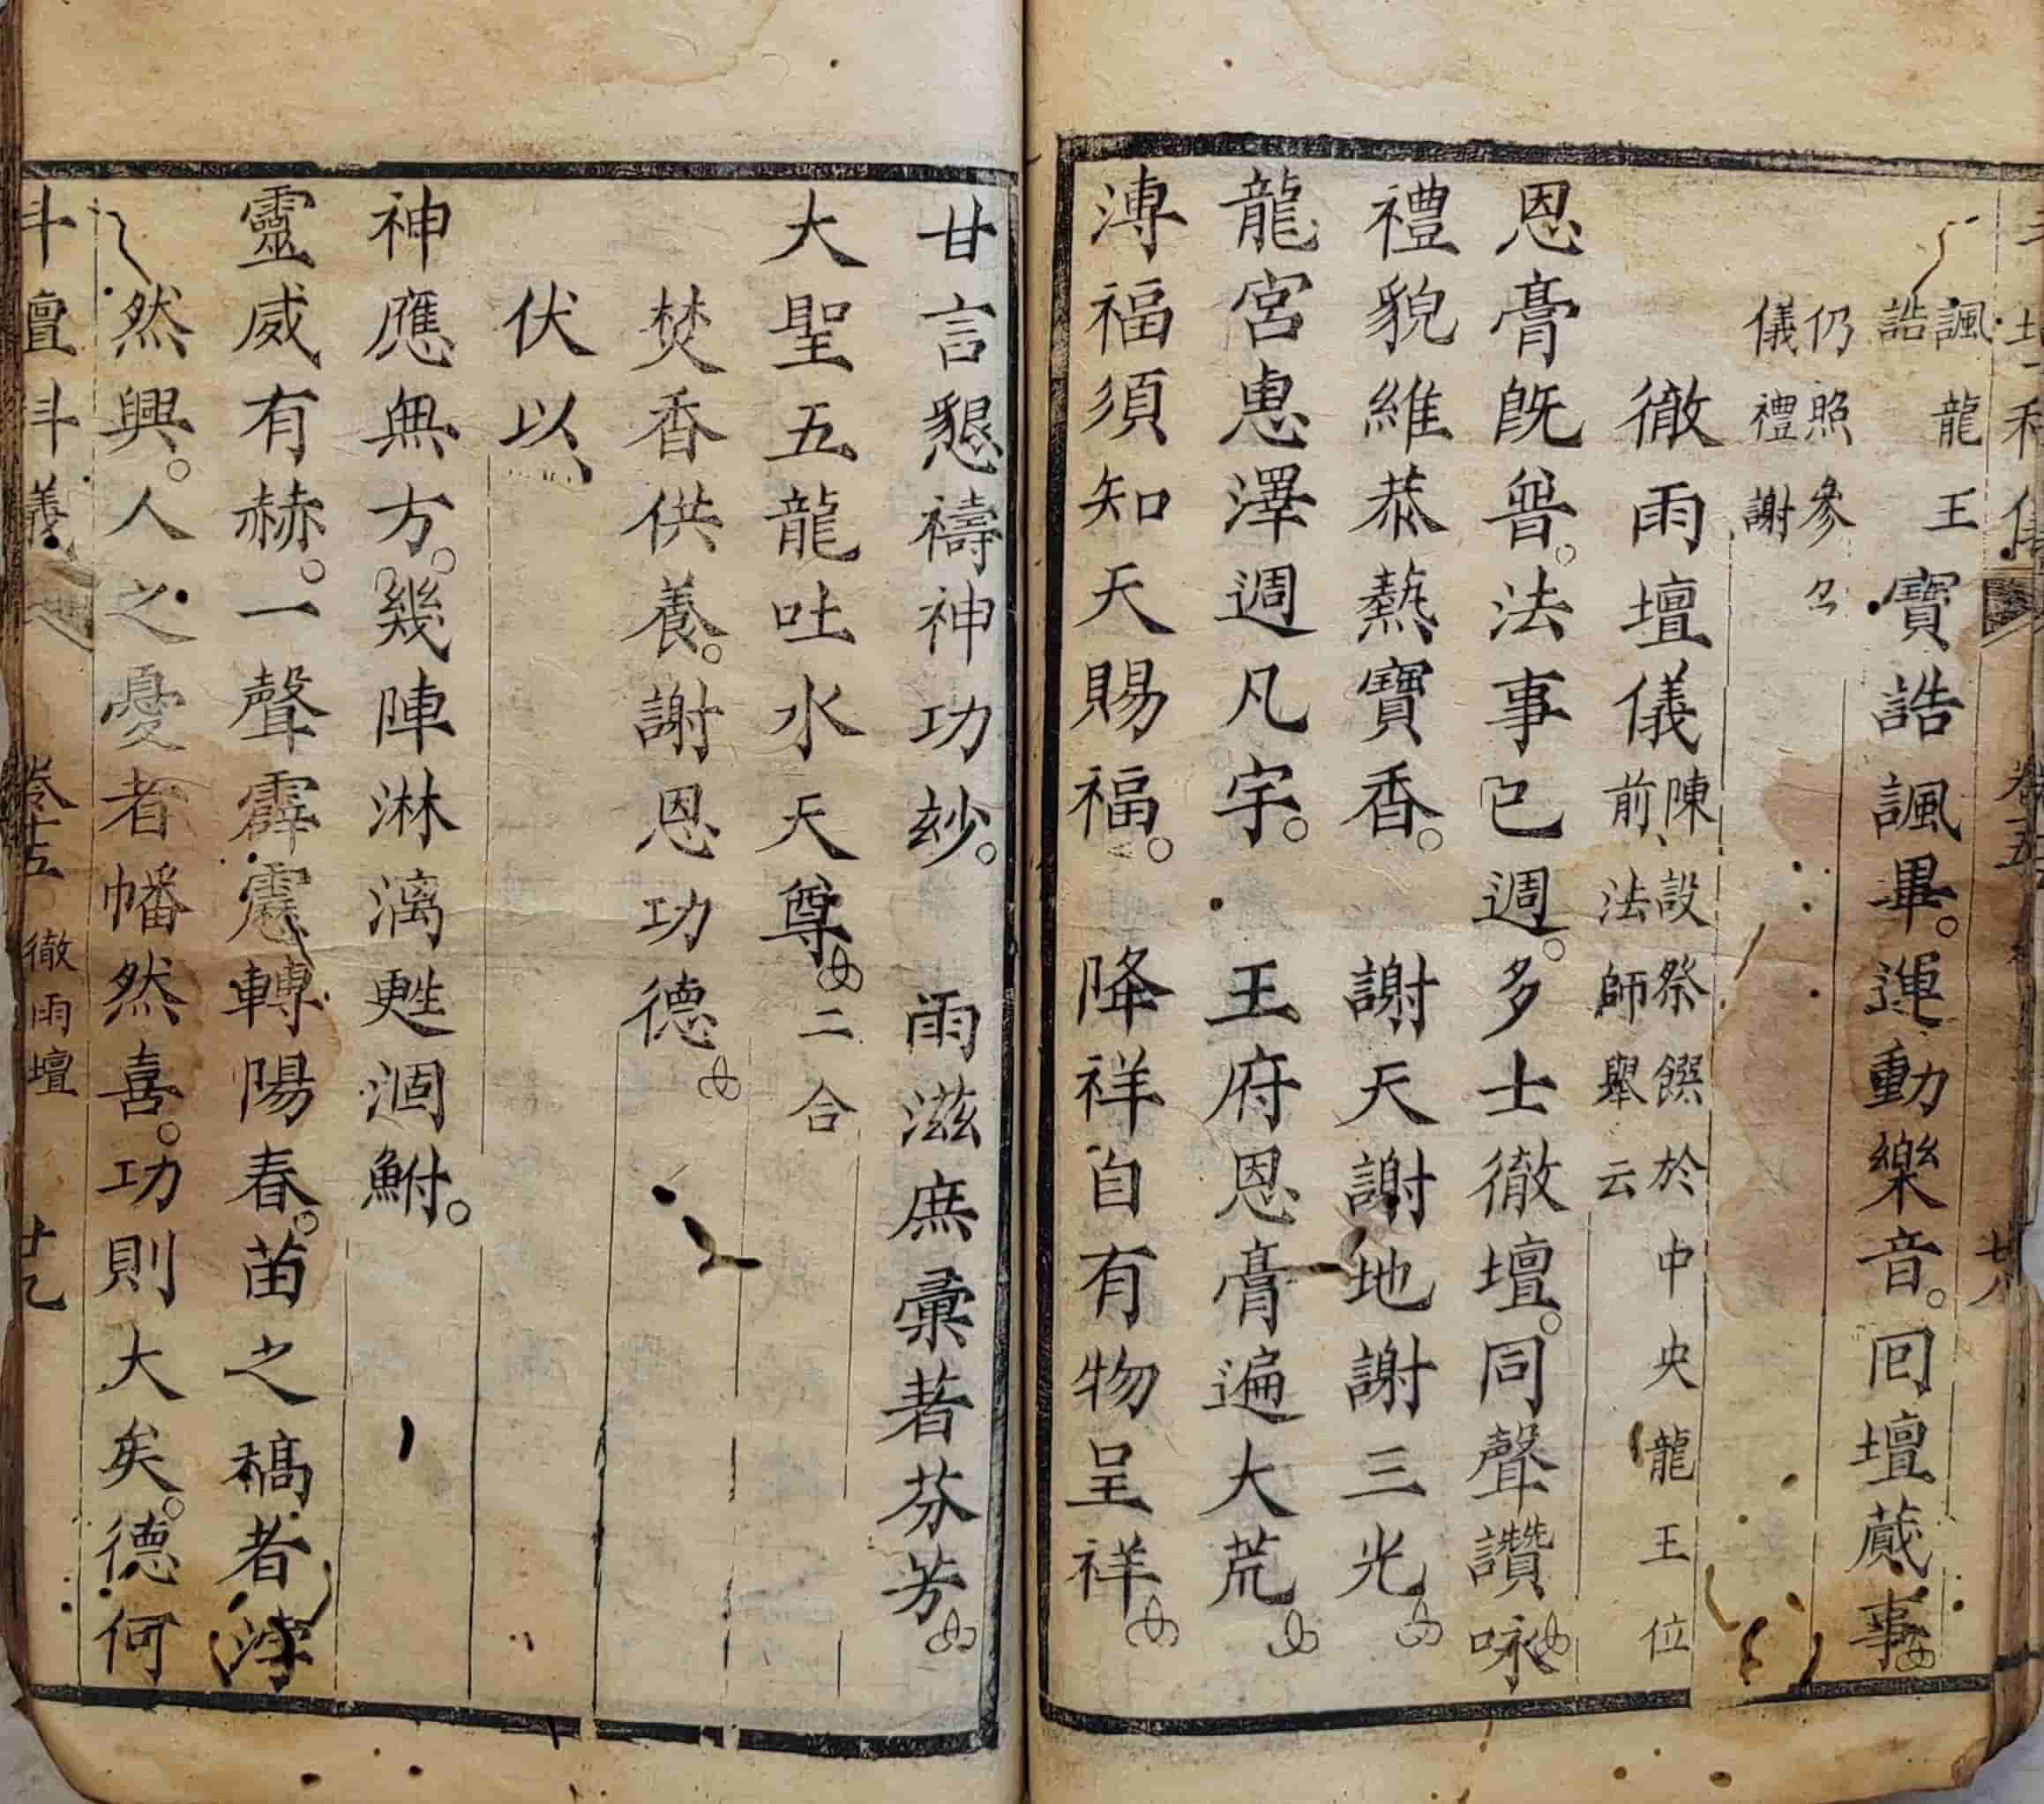 諷龍王
誥
寶誥諷畢。運動樂音。囘壇蕆事
仍照參
儀禮謝
徹雨壇儀
陳設祭饌於中央龍王位
前、法師舉云
恩膏旣普。法事已週。多士徹壇。同聲讚咏
禮貌維恭爇寶香。 謝天謝地謝三光
龍宮惠澤週凡宇。 王府恩膏遍大荒
溥福須知天賜福。 降祥自有物呈祥
甘言懇禱神功玅。 雨滋庶彙著芬芳
大聖五龍吐水天尊 二合
焚香供養。謝恩功德
伏以、
神應無方。幾陣淋漓甦涸鮒。
靈威有赫。一聲霹靂轉陽春。苗之稿者浡
然興。人之憂者幡然喜。功則大矣。德何
斗壇斗儀 卷十五 徹雨壇 廿九